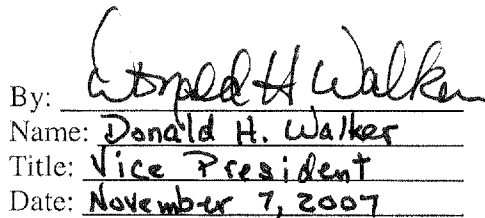 By: Donald H Walker
Name: Donald H. Walker
Title: Vice President
Date: November 7, 2007